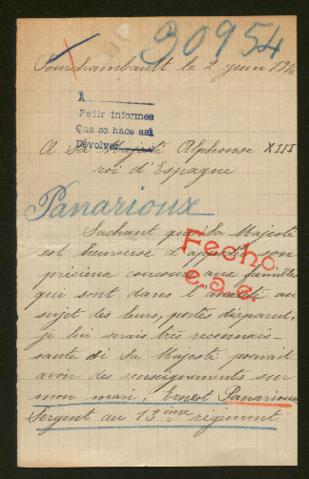 30954
Fourchambault le 2 juin 1916
A
Pedir informes
Que se hace así
Devolver
A Sa Majesté Alphonse XIII
roi d'Espagne
Panarioux
Fecho
Sachant que Sa Majesté
est heureuse d'apporter son
précieux concours aux familles
qui sont dans l'anxiété au
sujet des leurs, portés disparus,
je lui serais très reconnais-
sante si Sa Majesté pouvait
avoir des renseignements sur
mon mari, Ernest Panarioux
Sergent au 13ème régiment